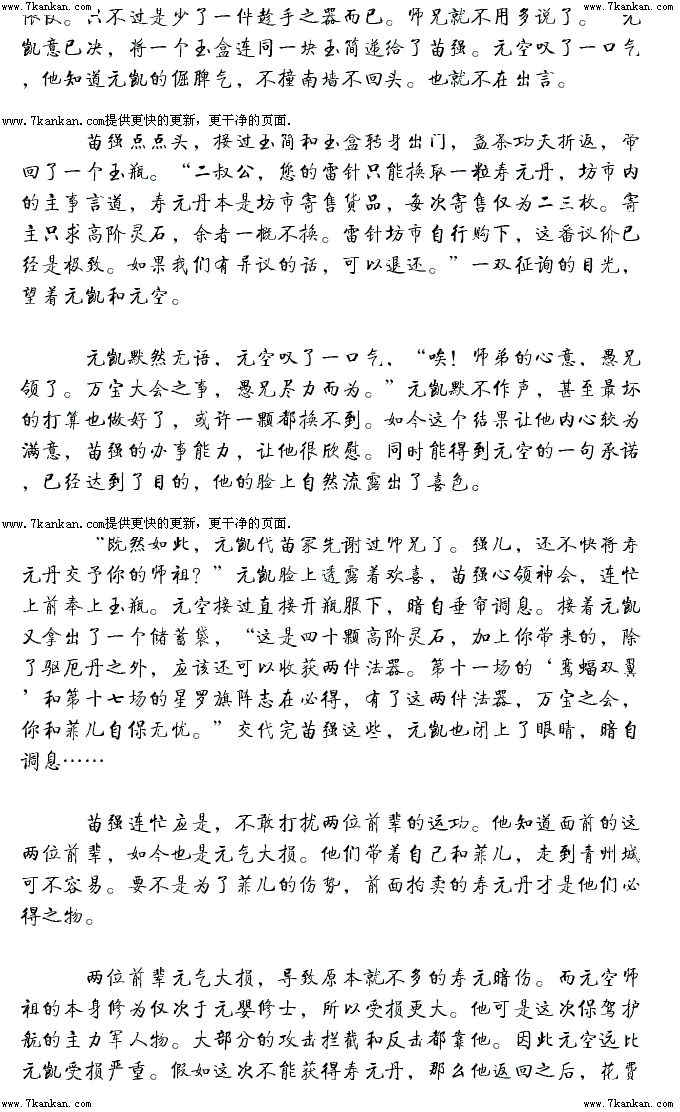 www.7kankan.com www.7kankan.com
依仗。只不过是少了一件趁手之器而已。师兄就不用多说了。” 元
凯意已决，将一个玉盒连同一块玉简递给了苗强。元空叹了一口气
，他知道元凯的倔脾气，不撞南墙不回头。也就不在出言。
www.7kankan.com提供更快的更新，更干净的页面.
苗强点点头，接过玉简和玉盒转身出门，盏茶功夫折返，带
回了一个玉瓶。“二叔公，您的雷针只能换取一粒寿元丹，坊市内
的主事言道，寿元丹本是坊市寄售货品，每次寄售仅为二三枚。寄
主只求高阶灵石，余者一概不换。雷针坊市自行购下，这番议价已
经是极致。如果我们有异议的话，可以退还。”一双征询的目光，
望着元凯和元空。
元凯默然无语，元空叹了一口气，“唉！师弟的心意，愚兄
领了。万宝大会之事，愚兄尽力而为。”元凯默不作声，甚至最坏
的打算也做好了，或许一颗都换不到。如今这个结果让他内心较为
满意，苗强的办事能力，让他很欣慰。同时能得到元空的一句承诺
，已经达到了目的，他的脸上自然流露出了喜色。
www.7kankan.com提供更快的更新，更干净的页面.
“既然如此，元凯代苗家先谢过师兄了。强儿，还不快将寿
元丹交予你的师祖？”元凯脸上透露着欢喜，苗强心领神会，连忙
上前奉上玉瓶。元空接过直接开瓶服下，暗自垂帘调息。接着元凯
又拿出了一个储蓄袋，“这是四十颗高阶灵石，加上你带来的，除
了驱厄丹之外，应该还可以收获两件法器。第十一场的‘鸾蝠双翼
’和第十七场的星罗旗阵志在必得，有了这两件法器，万宝之会，
你和菲儿自保无忧。”交代完苗强这些，元凯也闭上了眼睛，暗自
调息……
苗强连忙应是，不敢打扰两位前辈的运功。他知道面前的这
两位前辈，如今也是元气大损。他们带着自己和菲儿，走到青州城
可不容易。要不是为了菲儿的伤势，前面拍卖的寿元丹才是他们必
得之物。
两位前辈元气大损，导致原本就不多的寿元暗伤。而元空师
祖的本身修为仅次于元婴修士，所以受损更大。他可是这次保驾护
航的主力军人物。大部分的攻击拦截和反击都靠他。因此元空远比
元凯受损严重。假如这次不能获得寿元丹，那么他返回之后，花费
www.7kankan.com www.7kankan.com